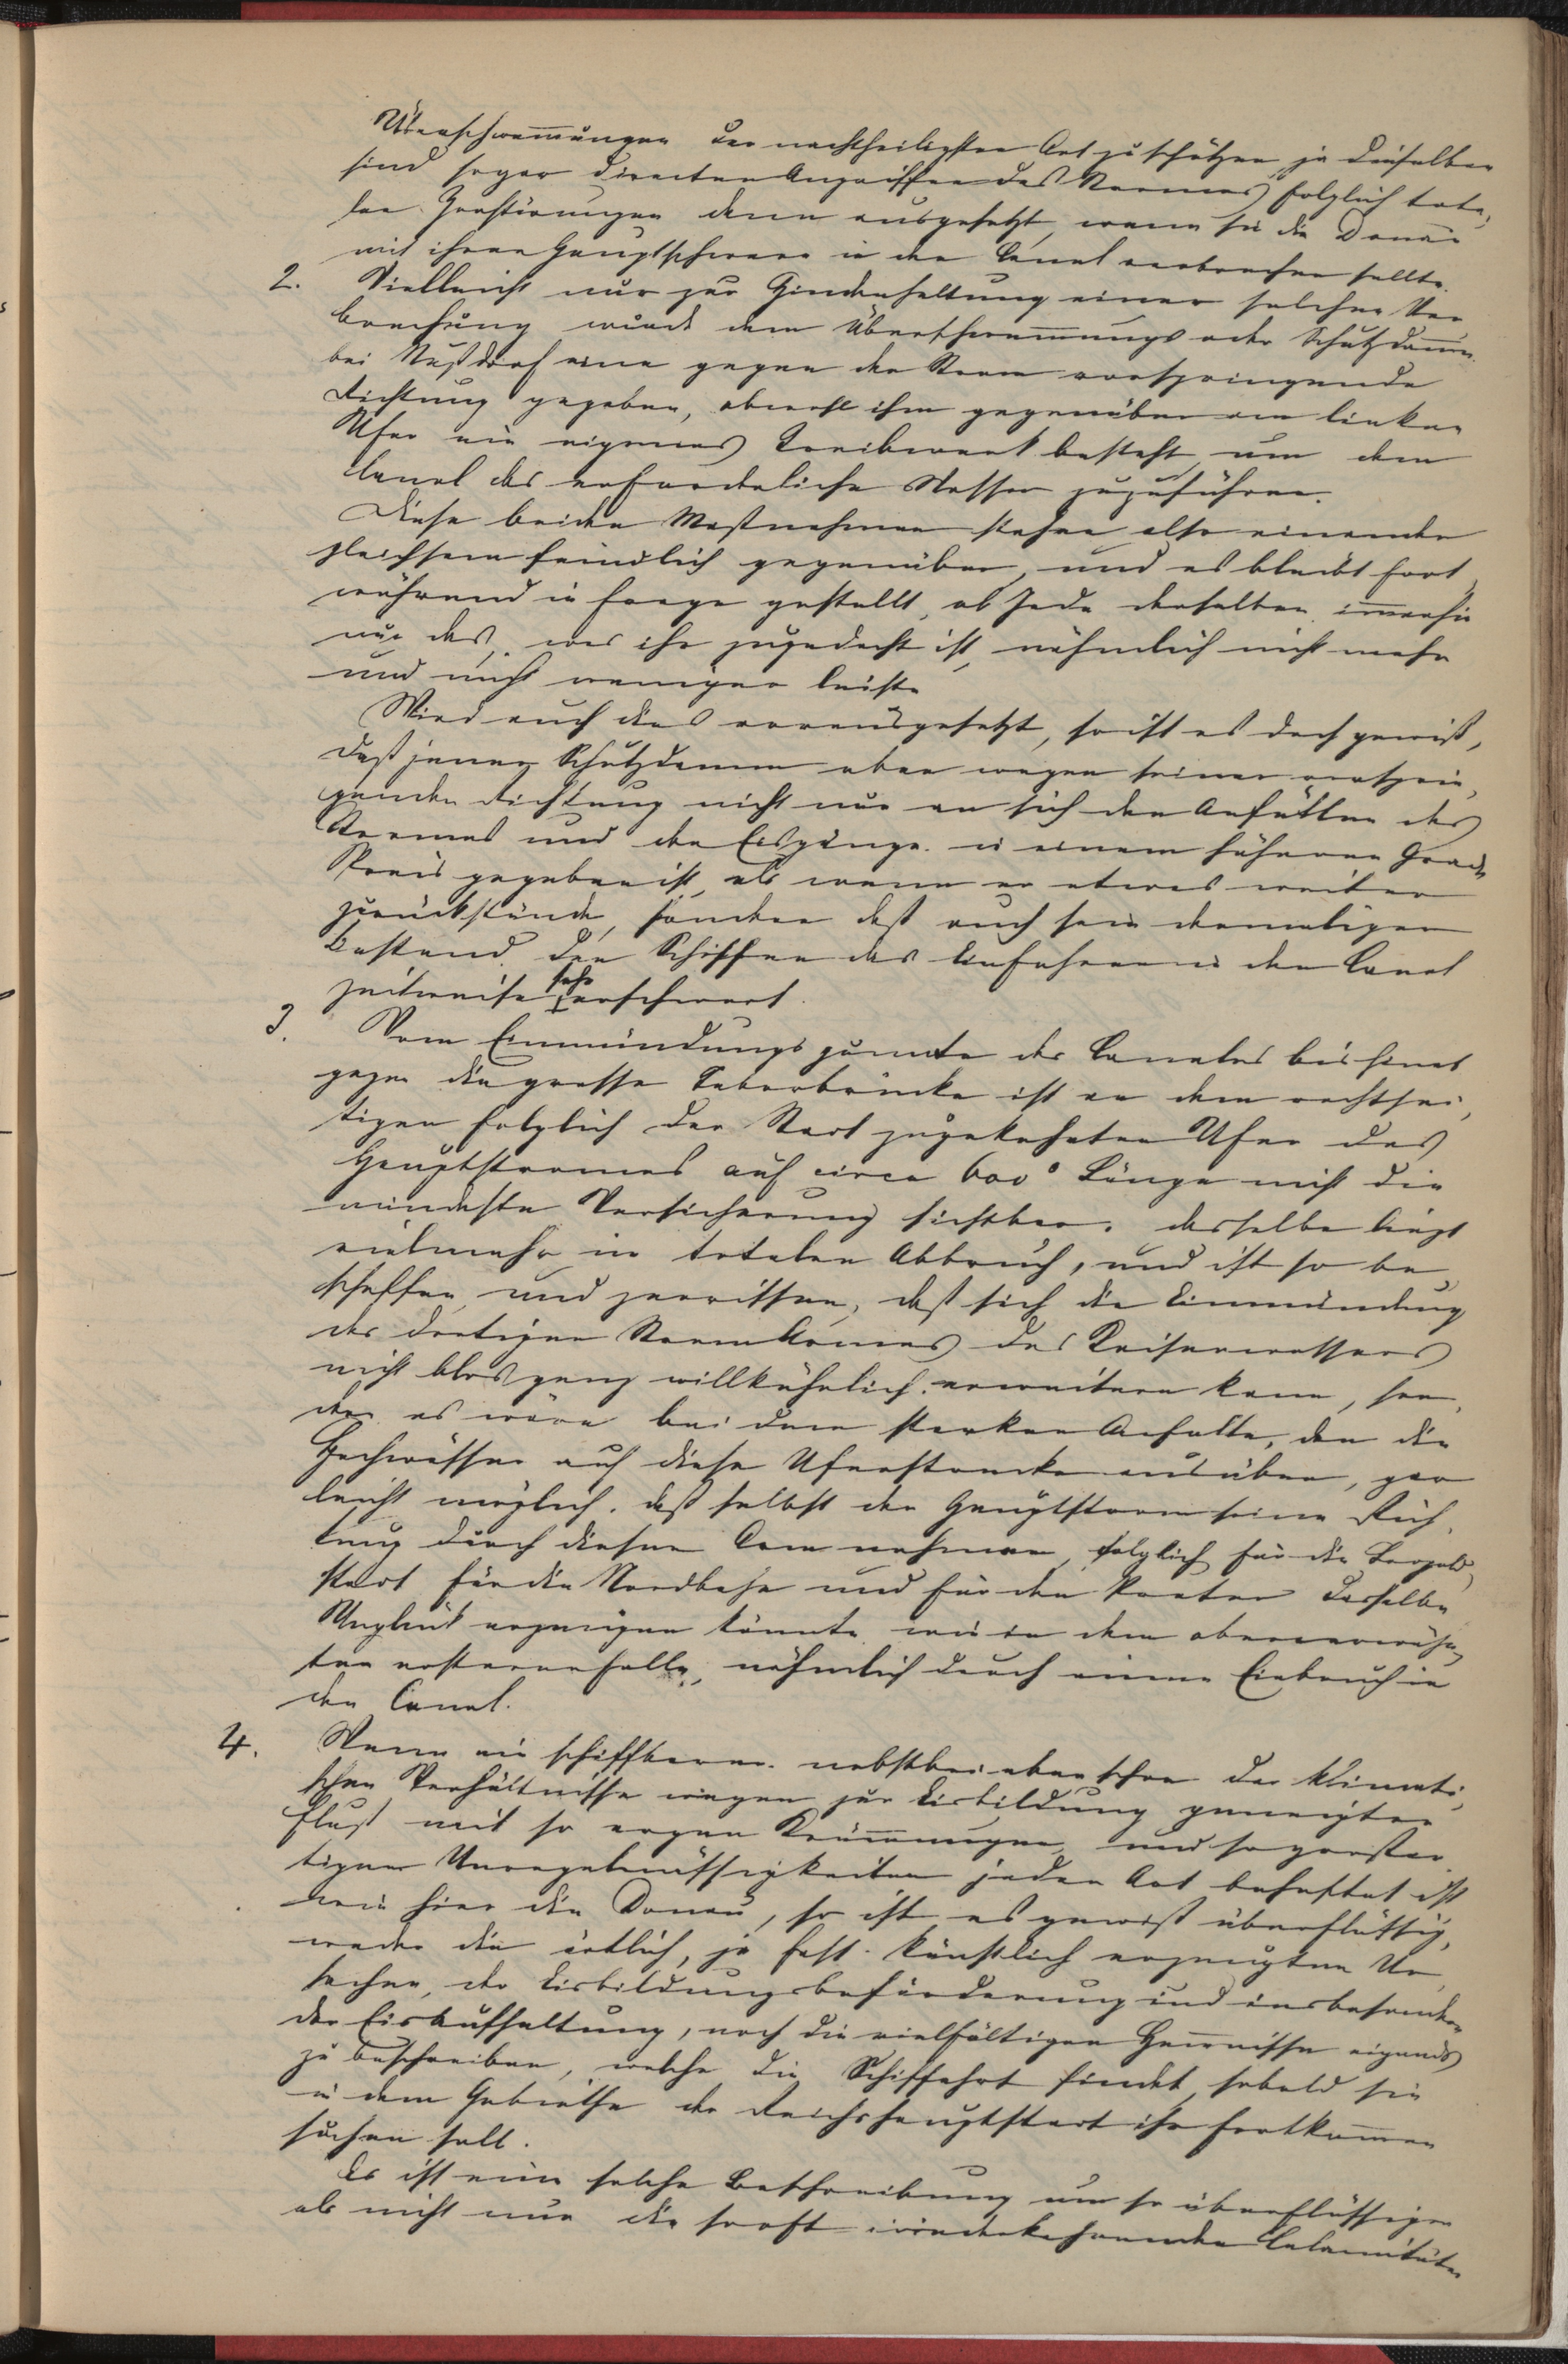 Überschwemungen der nachtheiligsten Art zu schützen ja dieselben
sind sogar directen Angriffen des Stromes folglich tota¬
len Zerstörungen denn ausgesetzt, wenn sie die Donau
mit ihrer Hauptschwere in den Canal verbrechen sollte.
2. Vielleicht nur zur Hindanhaltung einer solchen Ver
brechung wurde dem Überschwemungs oder Schutzdamm
bei Nußdorf eine gegen den Strom vorspringende
Richtung gegeben, obwohl ihm gegenüber am linken
Ufer ein eigenes Treibwerk besteht um dem
Canal das erforderliche Wasser zuzuführen.
Diese beiden Maßnahmen stehen also einander
gleichsam feindlich gegenüber, und es bleibt fort
während in Frage gestellt, ob Jede derselben immerhin
nur das, was ihr zugedacht ist, nähmlich nicht mehr
und nicht weniger leiste
Wird auch dies vorausgesetzt, so ist es doch gewiß,
daß jener Schutzdamm aber wegen seiner vorsprin¬
genden Richtung nicht nur an sich den Anfällen des
Stromes und der Eisgänge in einem höheren Grade
Preis gegeben ist, als wenn er etwas weiter
zurückstünde, sondern daß auch sein dermaliger
Bestand den Schiffen das Einfahren in den Canal
zeitweise sehr erschwert.
3. Vom Einmündungspuncte des Canales bis hinab
gegen die grosse Taborbrücke ist an dem rechtsei¬
tigen folglich der Stadt zugekehrten Ufer des
Hauptstromes auf circa 600° Länge nicht die
mindeste Versicherung sichtbar. dasselbe liegt
vielmehr in totalen Abbruch, und ist so be
schaffen und zerrissen, daß sich die Einmündung
des dortigen Stromarmes des Kaiserwassers
nicht blos ganz willkührlich erweitern kann, son
dern es wäre bei dem starken Anfalle, den die
Hochwässer auf diese Uferstrecke ausüben, gar
leicht möglich, daß selbst der Hauptstrom seine Rich¬
tung durch diesen Arm nehmen, folglich für die Leopold
stadt für die Nordbahn und für den Prater dasselbe
Unglück erzeugen könnte wie in dem obenerwähn
ten ersteren Falle, nähmlich durch einen Einbruch in
den Canal.
4. Wenn ein schiffbarer nebstbei aber schon der klimati¬
schen Verhältnisse wegen zur Eisbildung geneigter
Fluß mit so argen Krümmungen und so großar
tigen Unregelmässigkeiten jeder Art behaftet ist
wie hier die Donau, so ist es gewiß überflüssig,
weder die örtlich, ja fast künstlich erzeugten Ur
sachen, der Eisbildungsbeförderung und insbesondere
der Eisaufhaltung, noch die vielfältigen Hemnisse eigends
zu beschreiben, welche die Schiffahrt findet, sobald sie
in dem Gebiethe der Reichshauptstadt ihr Fortkommen
suchen soll.
Es ist eine solche Beschreibung um so überflüssiger
als nicht nur die so oft wiederkehrenden Calamitäten